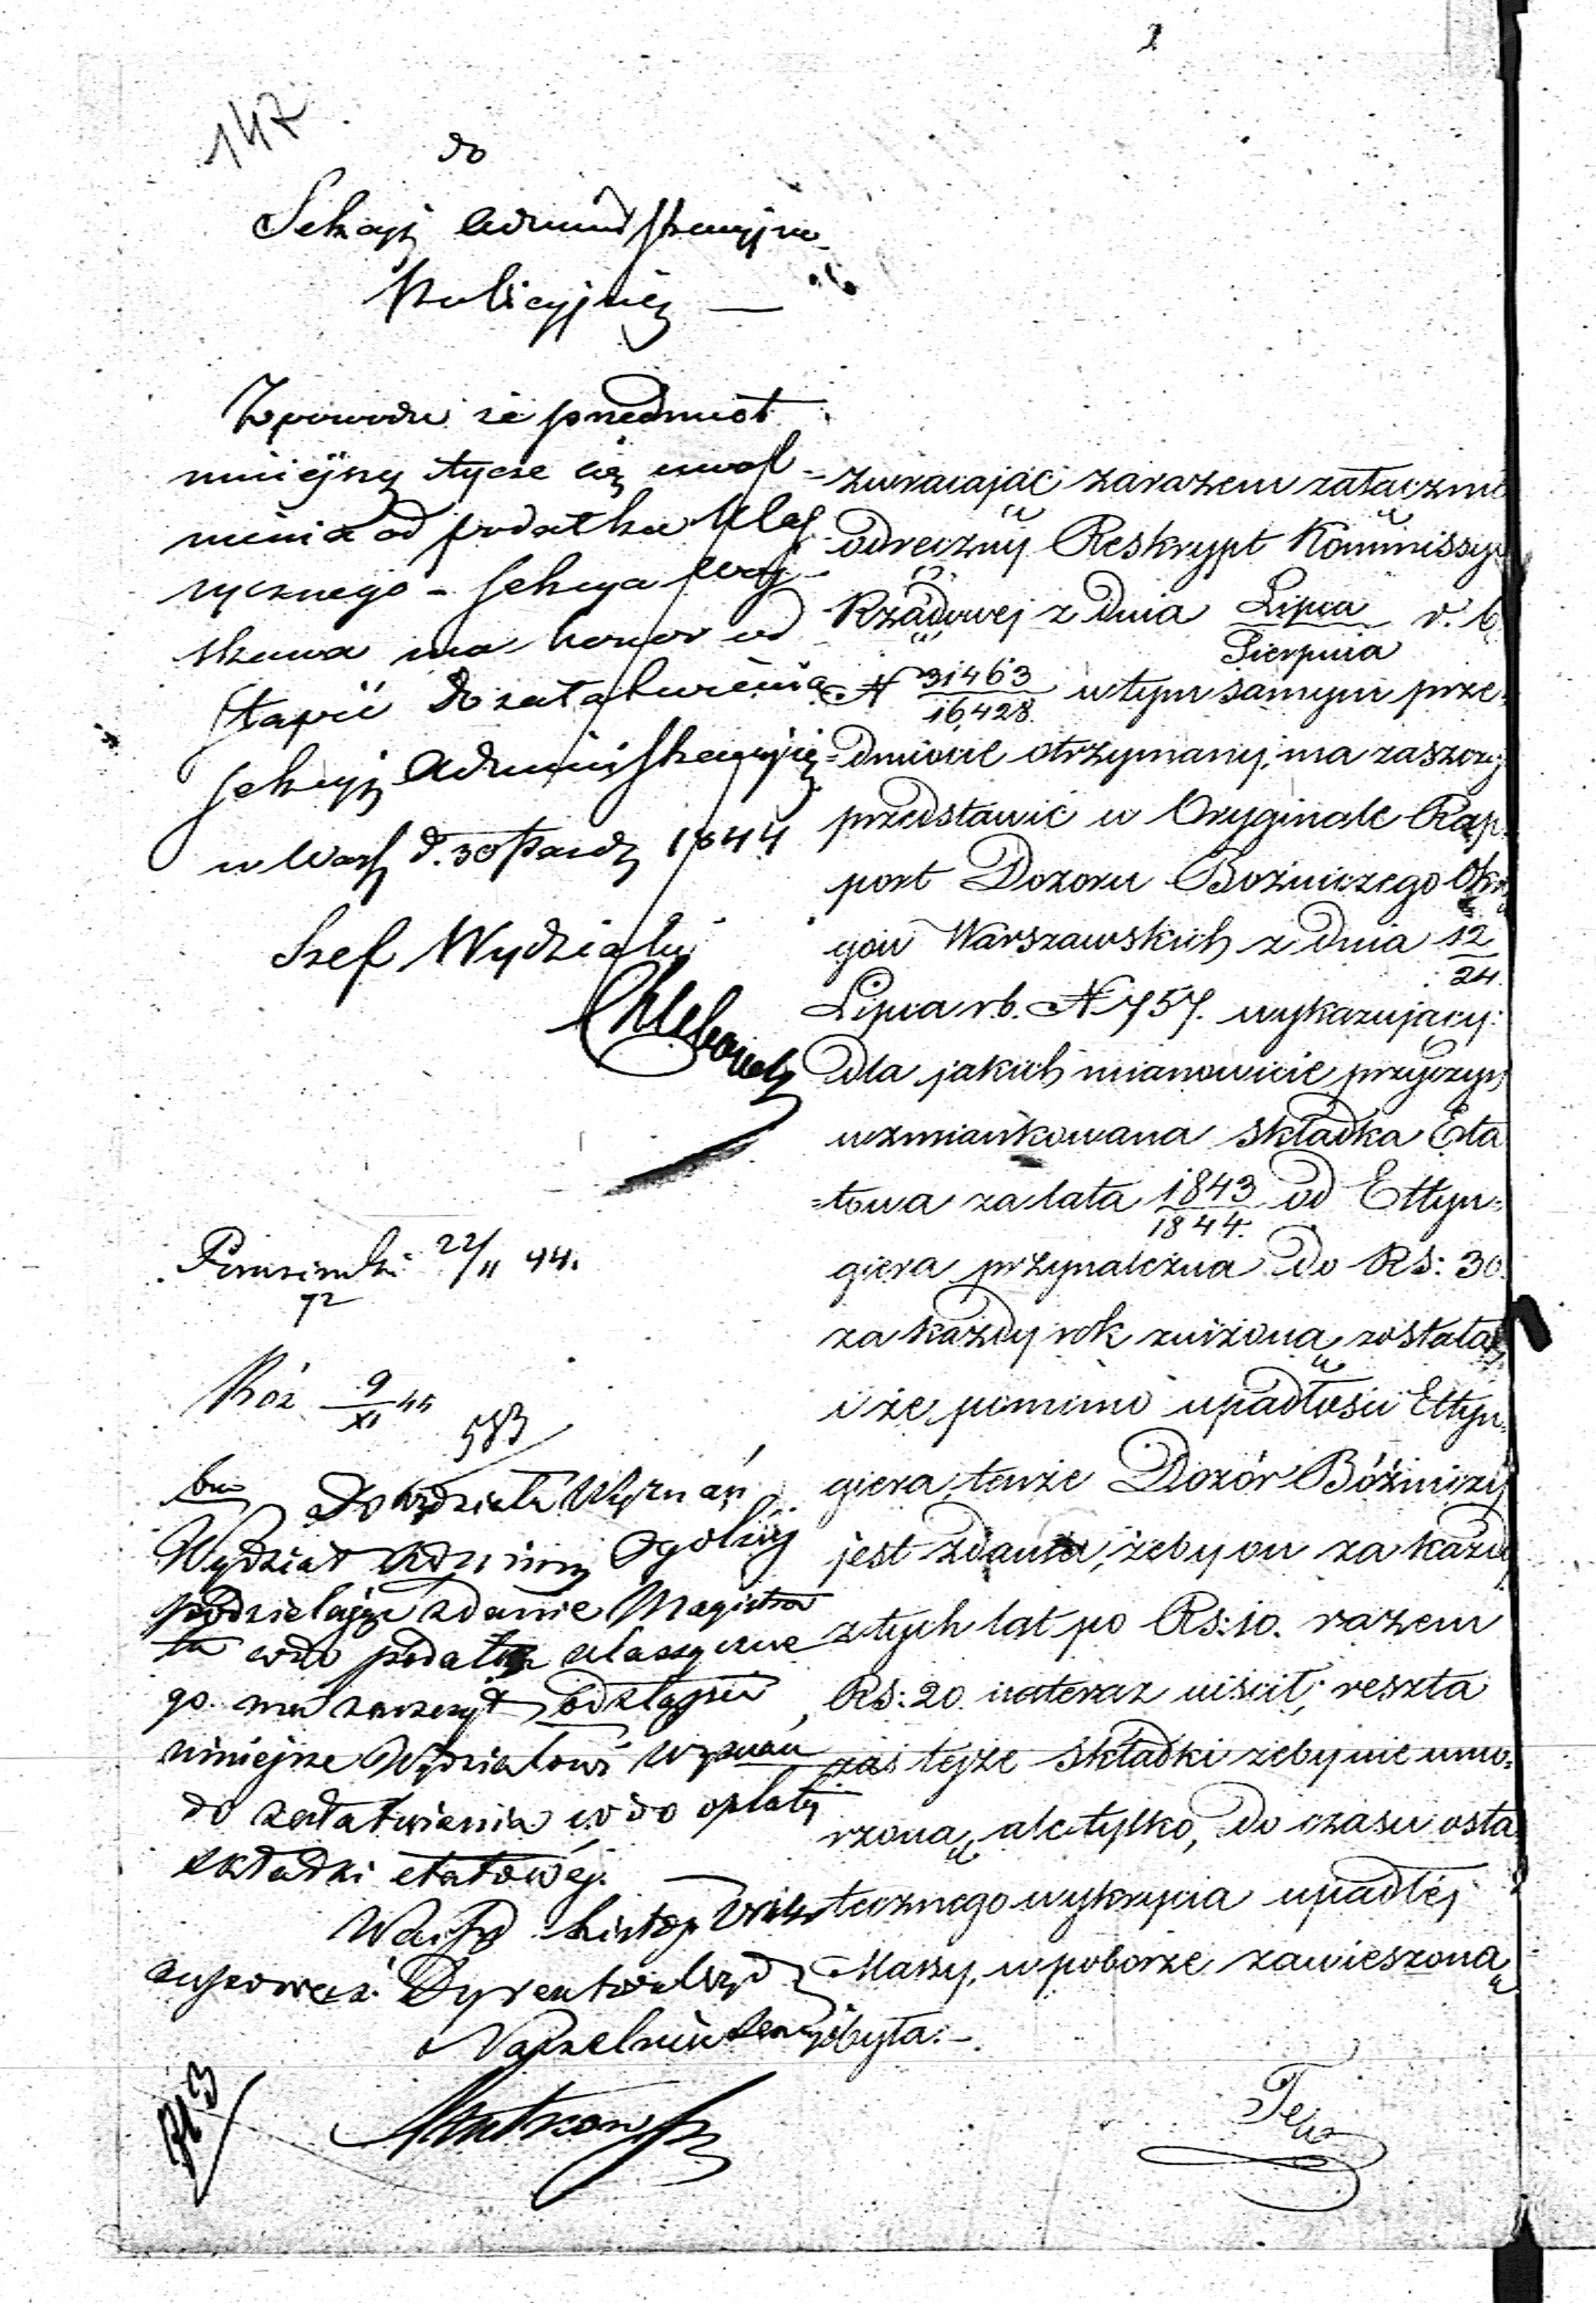 2
147
do
Sekcyi Administracyjno
Policyjnéj —
Z powodu że przedmiot
niniejszy tycze się uwol-
nienia od podatku klas-
sycznego - Sekcya Woj-
skowa ma honor od
stąpić do załatwienia
Sekcyi Administracyjnéj
w Warsz d. 30 Pazdz 1844
Szef Wydziału
Chlebowski
22/11 44.
72
9/XI 44
583
Do Wydziału Wyznań
Wydział Admin Ogólnéj
podzielając zdanie Magistra
tu wzdo podatku klassyczne
go. ma zaszczyt odstąpić
niniejsze Wydziałowi Wyznań
do załatwienia co do opłaty
składki etatowéj.
Warsz Listop
Dyrektor
Naczelnik
zwracając zarazem załącznie
odręczny Reskrypt Kommissyi
Rządowej z dnia Lipca/Sierpnia r. b.
N 31463/16428. w tym samym prze-
dmiocie otrzymany, ma zaszczyt
przedstawić w Oryginale Rap-
port Dozoru Bożniczego Okrę
gów Warszawskich z dnia 12/24.
Lipca rb. N 757. wykazujący:
dla jakich mianowicie przyczyn
wzmiankowana składka Eta
=towa za lata 1843/1844. od Ettyn=
giera przynależna do RS: 30.
za każdy rok zniżoną została,
i że pomimo upadłości Ettyn=
giera, tenże Dozór Bóżniczy
jest zdania, żeby on za każdy
z tych lat po RS: 10. razem
RS: 20. nateraz uiścił; reszta
zaś tejże składki żeby nie umo=
rzoną, ale tylko, do czasu osta
tecznego wykrycia upadłéj
Massy, w poborze zawieszoną
była.-